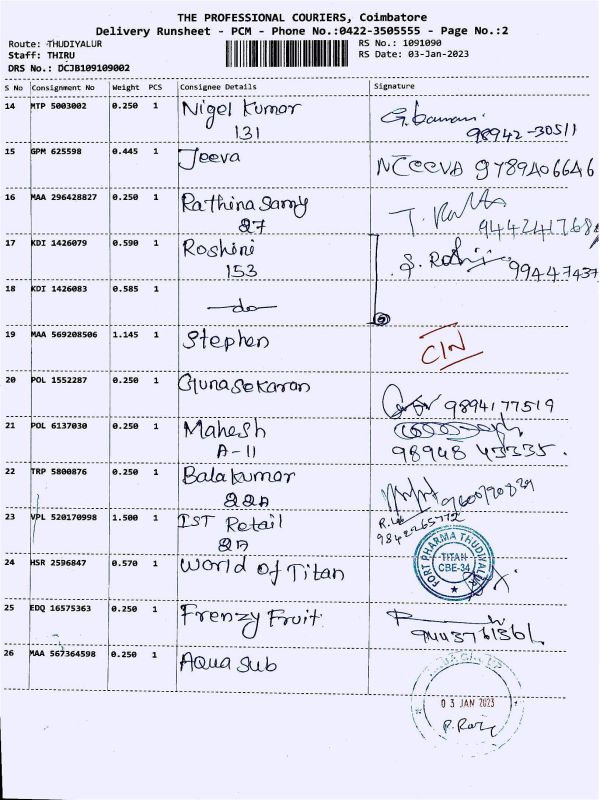 THE PROFESSIONAL COURIERS, Coimbatore
Delivery Runsheet - PCM - Phone No.:0422-3505555 - Page No.:2
Route: THUDIYALUR RS No.: 1091090
Staff: THIRU RS Date: 03-Jan-2023
DRS No.: DCJB109109002
S No Consignment No Weight PCS Consignee Details Signature
14 MTP 5003002 0.250 1 Nigel Kumar
131 98942-30511
15 GPM 625598 0.445 1 Jeeva 9789406646
16 MAA 296428827 0.250 1 Rathina Samy
27 944241768
17 KDI 1426079 0.590 1 Roshini
153 99447437
18 KDI 1426083 0.585 1 -do-
19 MAA 569208506 1.145 1 Stephen CIN
20 POL 1552287 0.250 1 Gunasekaran
9894177519
21 POL 6137030 0.250 1 Mahesh
A-11 98948 43335.
22 TRP 5800876 0.250 1 Balakumar
22A
23 VPL 520170998 1.500 1 IST Retail
2A 9842265772
24 HSR 2596847 0.570 1 World of Titan FORT PHARMA THUDIYALUR
TITAN
CBE-34
25 EDQ 16575363 0.250 1 Frenzy Fruit
26 MAA 567364598 0.250 1 Aqua sub
03 JAN 2023